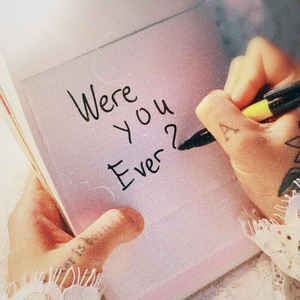 Were
you
Ever?
A